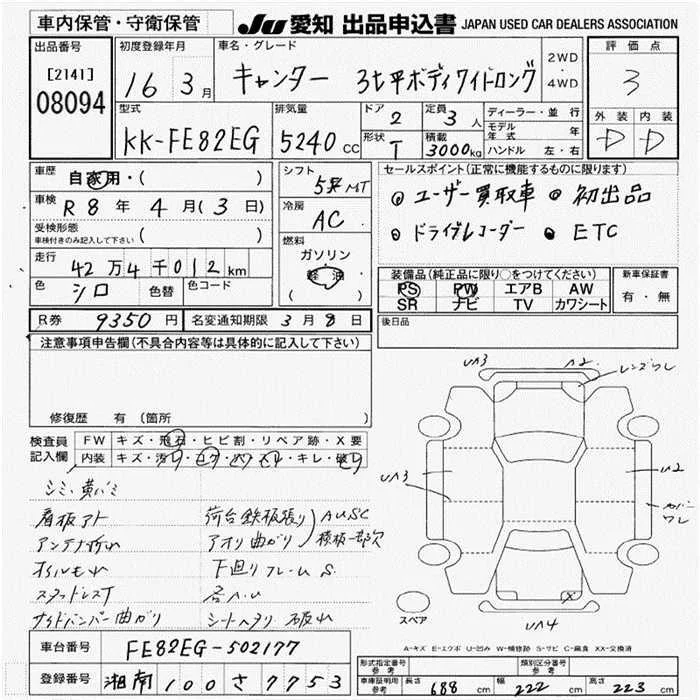 車内保管・守衛保管
JU 愛知 出品申込書 JAPAN USED CAR DEALERS ASSOCIATION
出品番号
[2141]
08094
初度登録年月
16 3月
車名・グレード
キャンター 3t平ボディワイドロング
2WD
・
4WD
評価点
3
外装 内装
D D
型式
KK-FE82EG
排気量
5240cc
ドア 2
形状 T
定員 3人
積載 3000kg
ディーラー・並行
モデル年式 年
ハンドル 左・右
車歴
自家用・( )
車検
R8年4月(3日)
受検形態
車検付きのみ記入して下さい ( )
走行
42万4千012km
色 シロ
色替
色コード
シフト
5速MT
冷房
AC
燃料
ガソリン
軽油
( )
セールスポイント(正常に機能するものに限ります)
ユーザー買取車 初出品
ドライブレコーダー ETC
装備品(純正品に限り○をつけてください)
PS PW エアB AW
SR ナビ TV カワシート
新車保証書
有・無
後日品
R券 9350円
名変通知期限 3月8日
注意事項申告欄(不具合内容等は具体的に記入して下さい)
修復歴 有(箇所 )
検査員記入欄
FW キズ・飛石・ヒビ割・リペア跡・X要
内装 キズ・汚レ・コゲ・穴・スレ・キレ・破レ
シミ、黄バミ
看板アト
アンテナ折れ
オイルもれ
スタッドレスT
サイドバンパー曲がり
荷台鉄板張り AUSC
アオリ曲がり 横板一部欠
下廻りフレームS.
各A.U
シートヘタリ 破れ
UA3
A2.
レンズワレ
UA3
U2
カバーワレ
X
UA4
スペア
A-キズ E-エクボ U-凹み W-補修跡 S-サビ C-腐食 XX-交換済
車台番号 FE82EG-502177
登録番号 湘南 100 さ 7753
形式指定番号 参考
類別区分番号 参考
車庫証明用 参考
長さ 688cm
幅 222cm
高さ 223cm